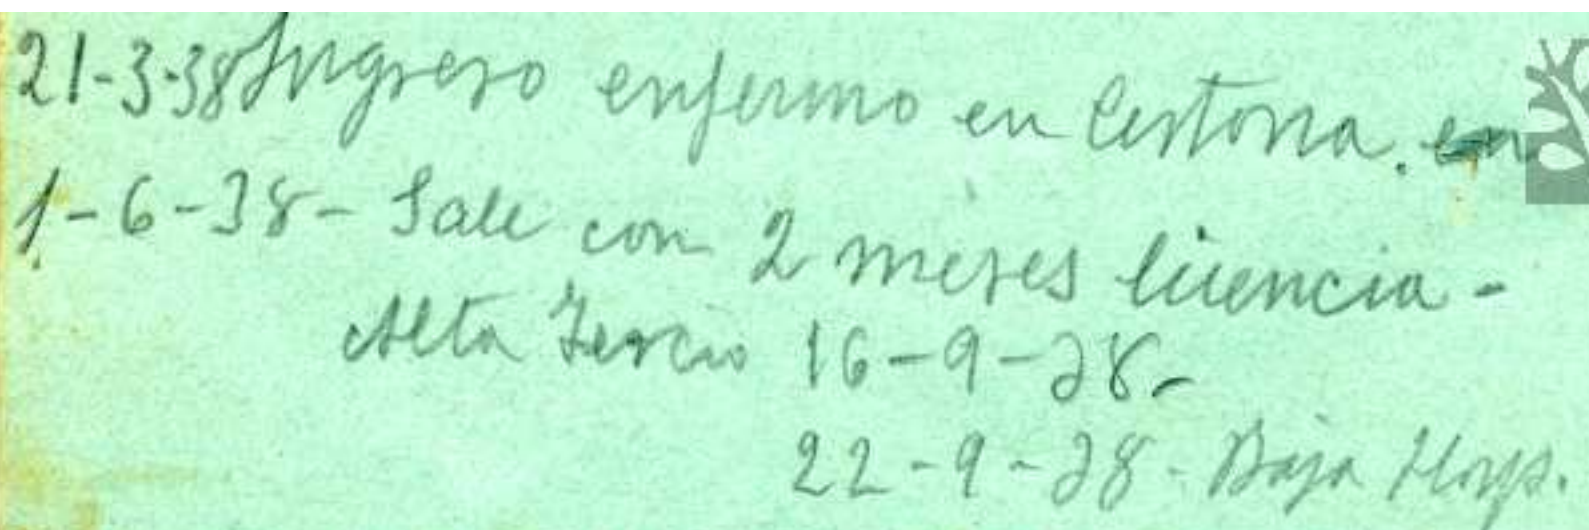 21-3-38 Ingreso enfermo en Cestona. en
1-6-38- Sale con 2 meses licencia-
Alta Tercio 16-9-38-
22-9-38- Baja Hosp.